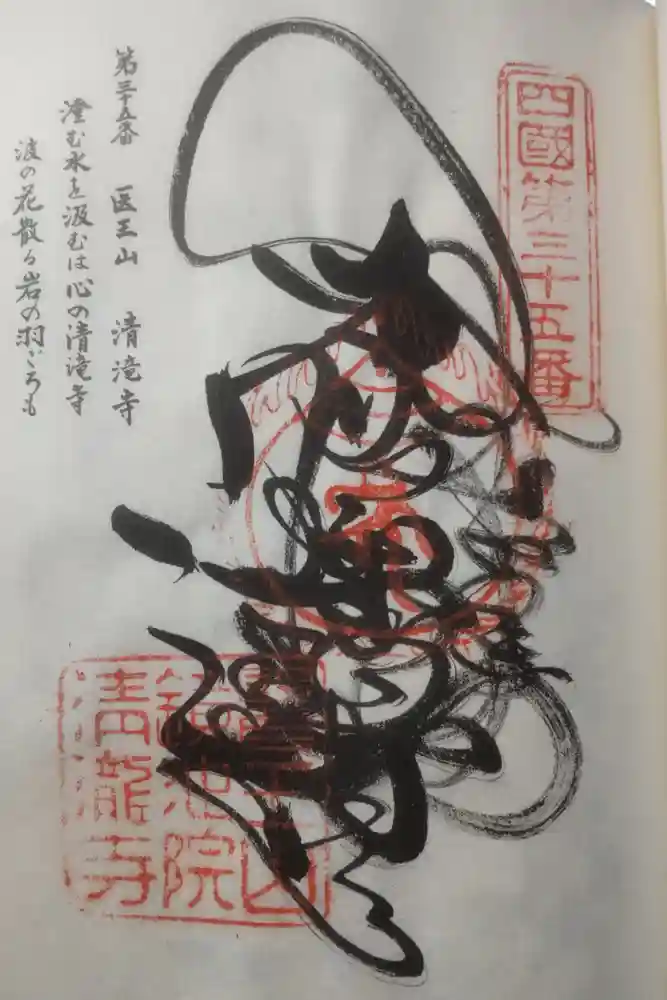 四國第三十五番
醫王山
鏡池院
清瀧寺
第三十五番　医王山　清滝寺
澄む水を汲むは心の清滝寺
波の花散る岩の羽ごろも